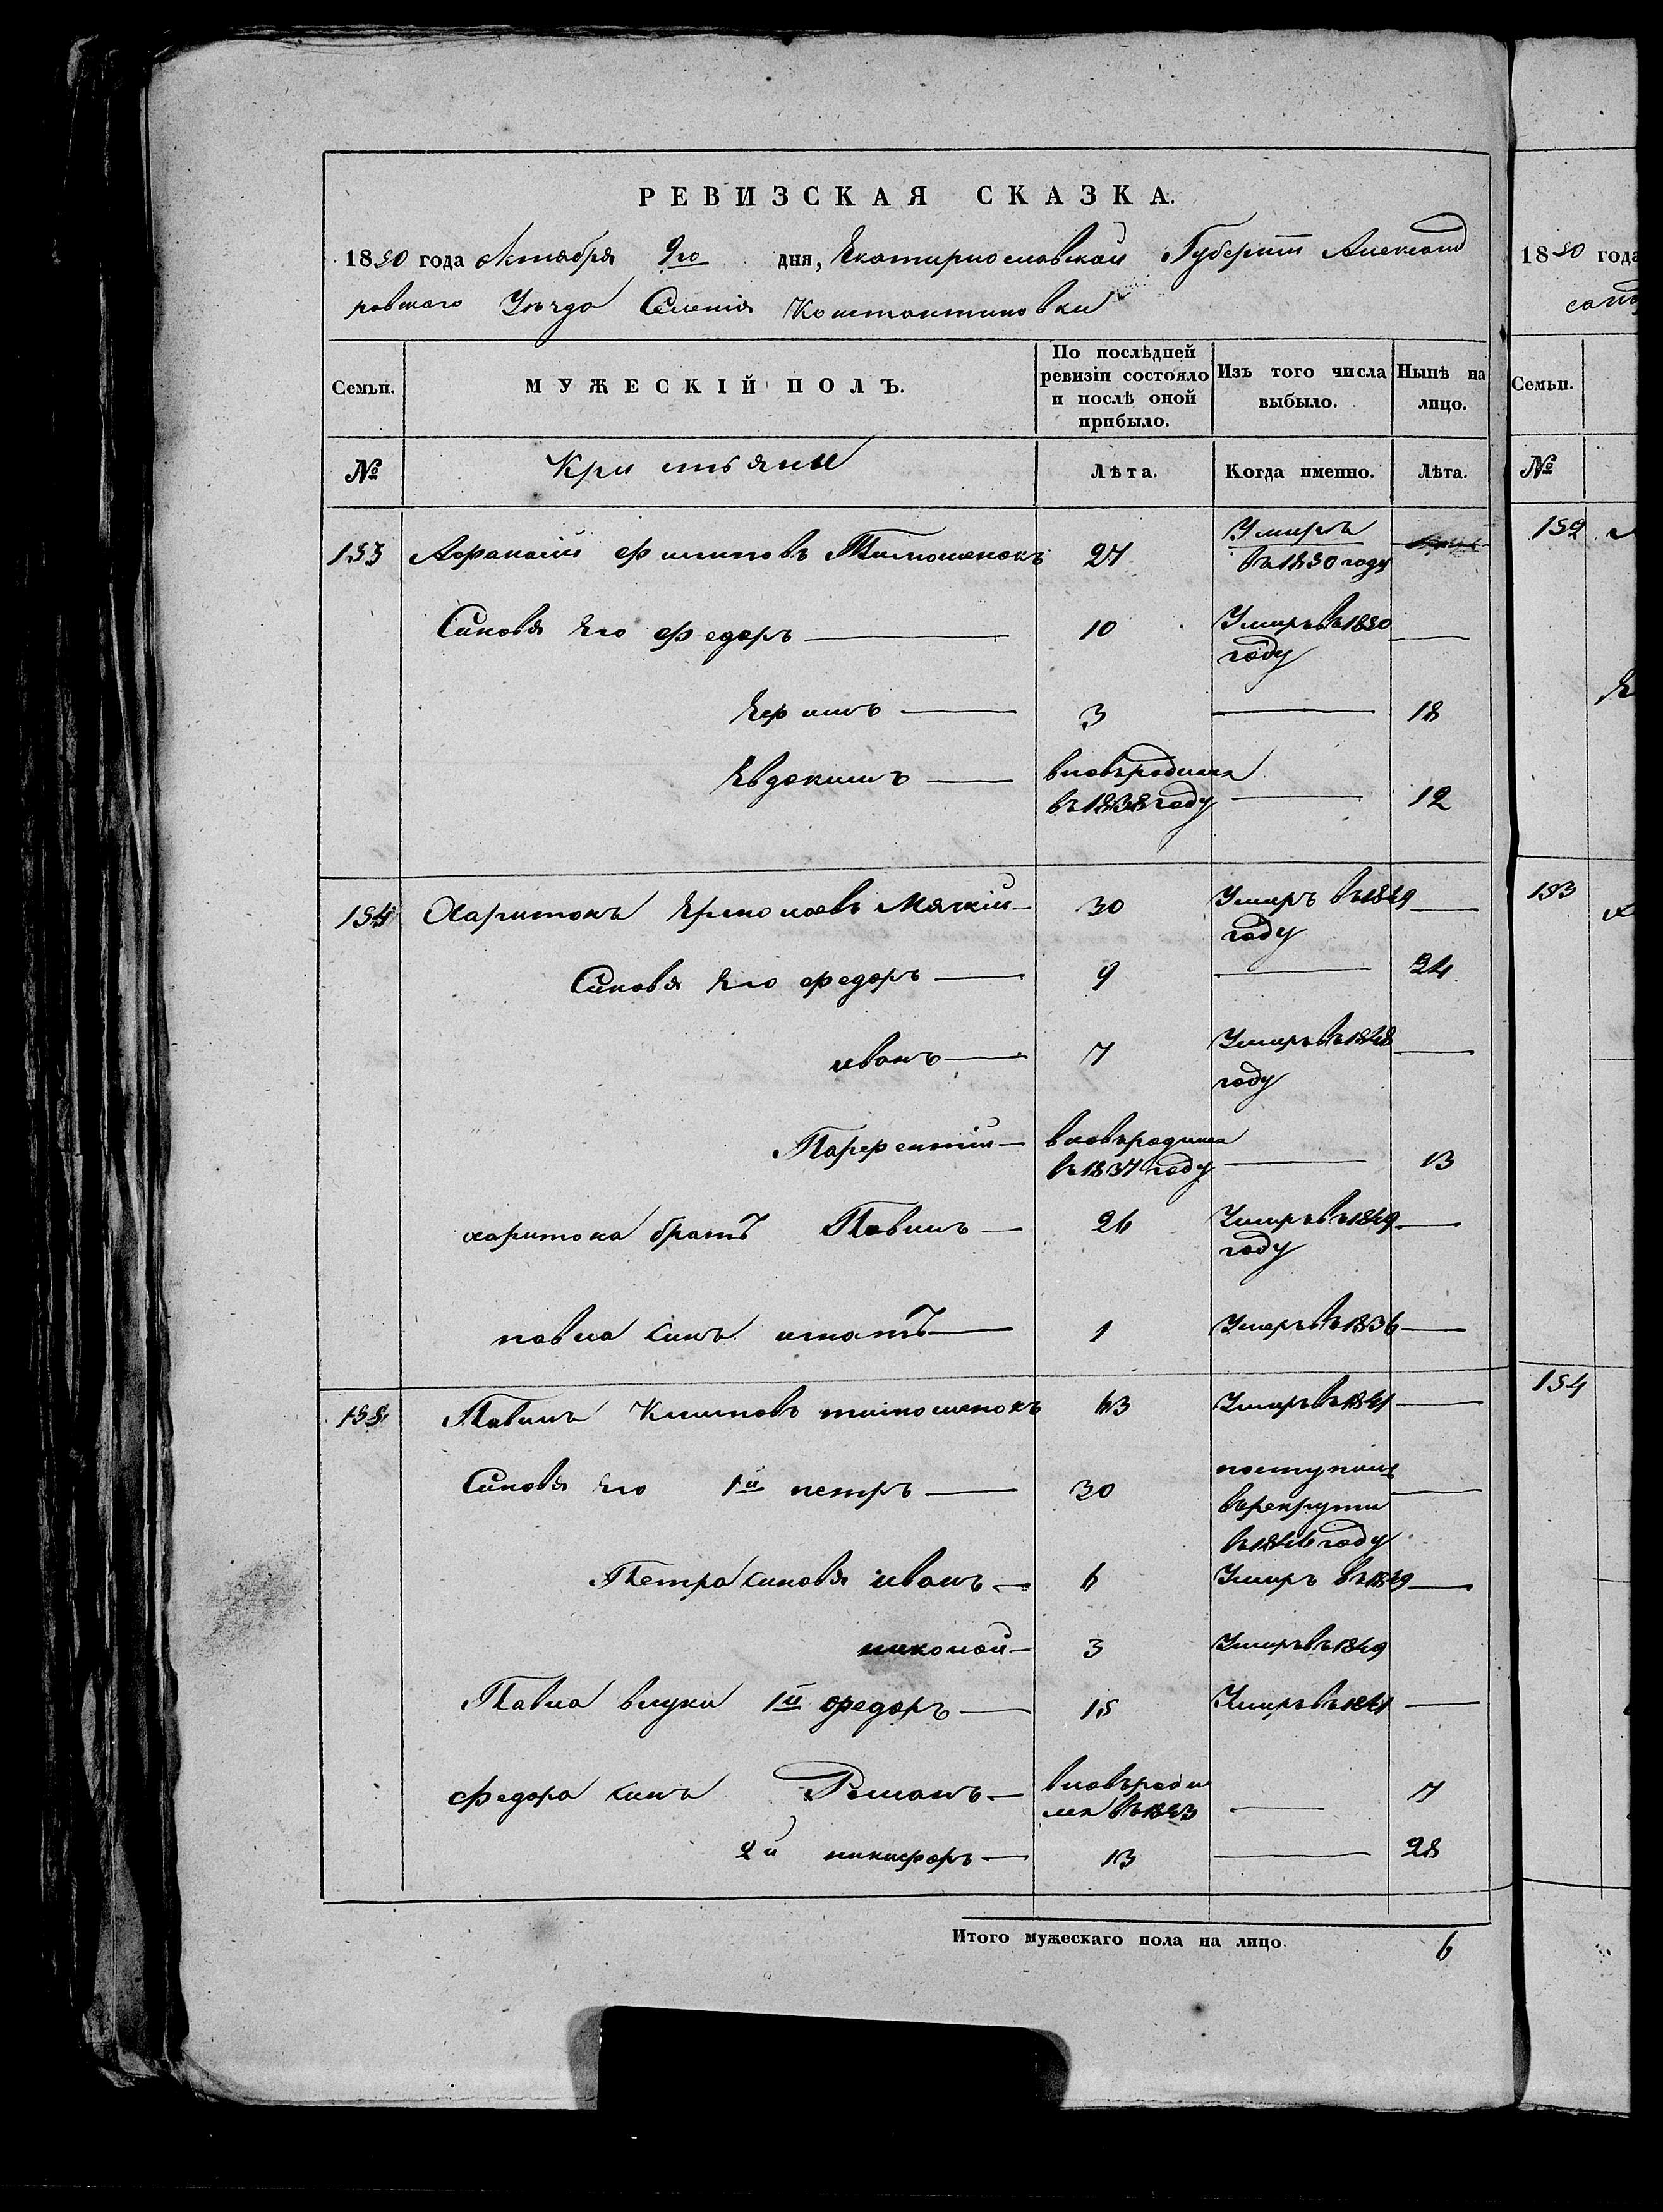 РЕВИЗСКАЯ СКАЗКА.
1850 года октября 9го дня, Екатиринославской Губернии Александ
ровского Уезда Селения Константиновки
Семьи. МУЖЕСКІЙ ПОЛЪ. По послѣдней ревизіи состояло и послѣ оной прибыло. Изъ того числа выбыло. Нынѣ на лицо.
№ Кристьяне Лѣта. Когда именно. Лѣта.
153 Афанасий Филиповъ Тимошенокъ 27 Умиръ въ 1850 году
Синовя Его Федоръ — 10 Умиръ въ 1850 году —
Ефимъ — 3 — 18
Евдокимъ — вновъродился въ 1838 году — 12
154 Харитонъ Ермолаевъ Мягкий — 30 Умиръ въ 1849 году —
Синовя Его Федоръ — 9 — 24
иванъ — 7 Умиръ въ 1848 году —
Парфентий — вновъродился въ 1837 году — 13
харитона братъ Павилъ — 26 Умиръ въ 1849 году —
павла синъ игнатъ — 1 Умеръ въ 1836 —
155 Павилъ Климовъ тимошенокъ 63 Умиръ въ 1841 —
Синовя Его 1й петръ — 30 поступилъ
в рекруты —
въ 1846 году
Петра синовя иванъ — 6 Умиръ въ 1839 —
николай — 3 Умиръ въ 1849
Павла внуки 1й федоръ — 15 Умиръ въ 1841 —
Федора синъ Романъ — вновъроди
лся въ 1843 — 7
2й никифоръ — 13 — 28
Итого мужескаго пола на лицо. 6
1850 года
Семьи.
№
152
153
154